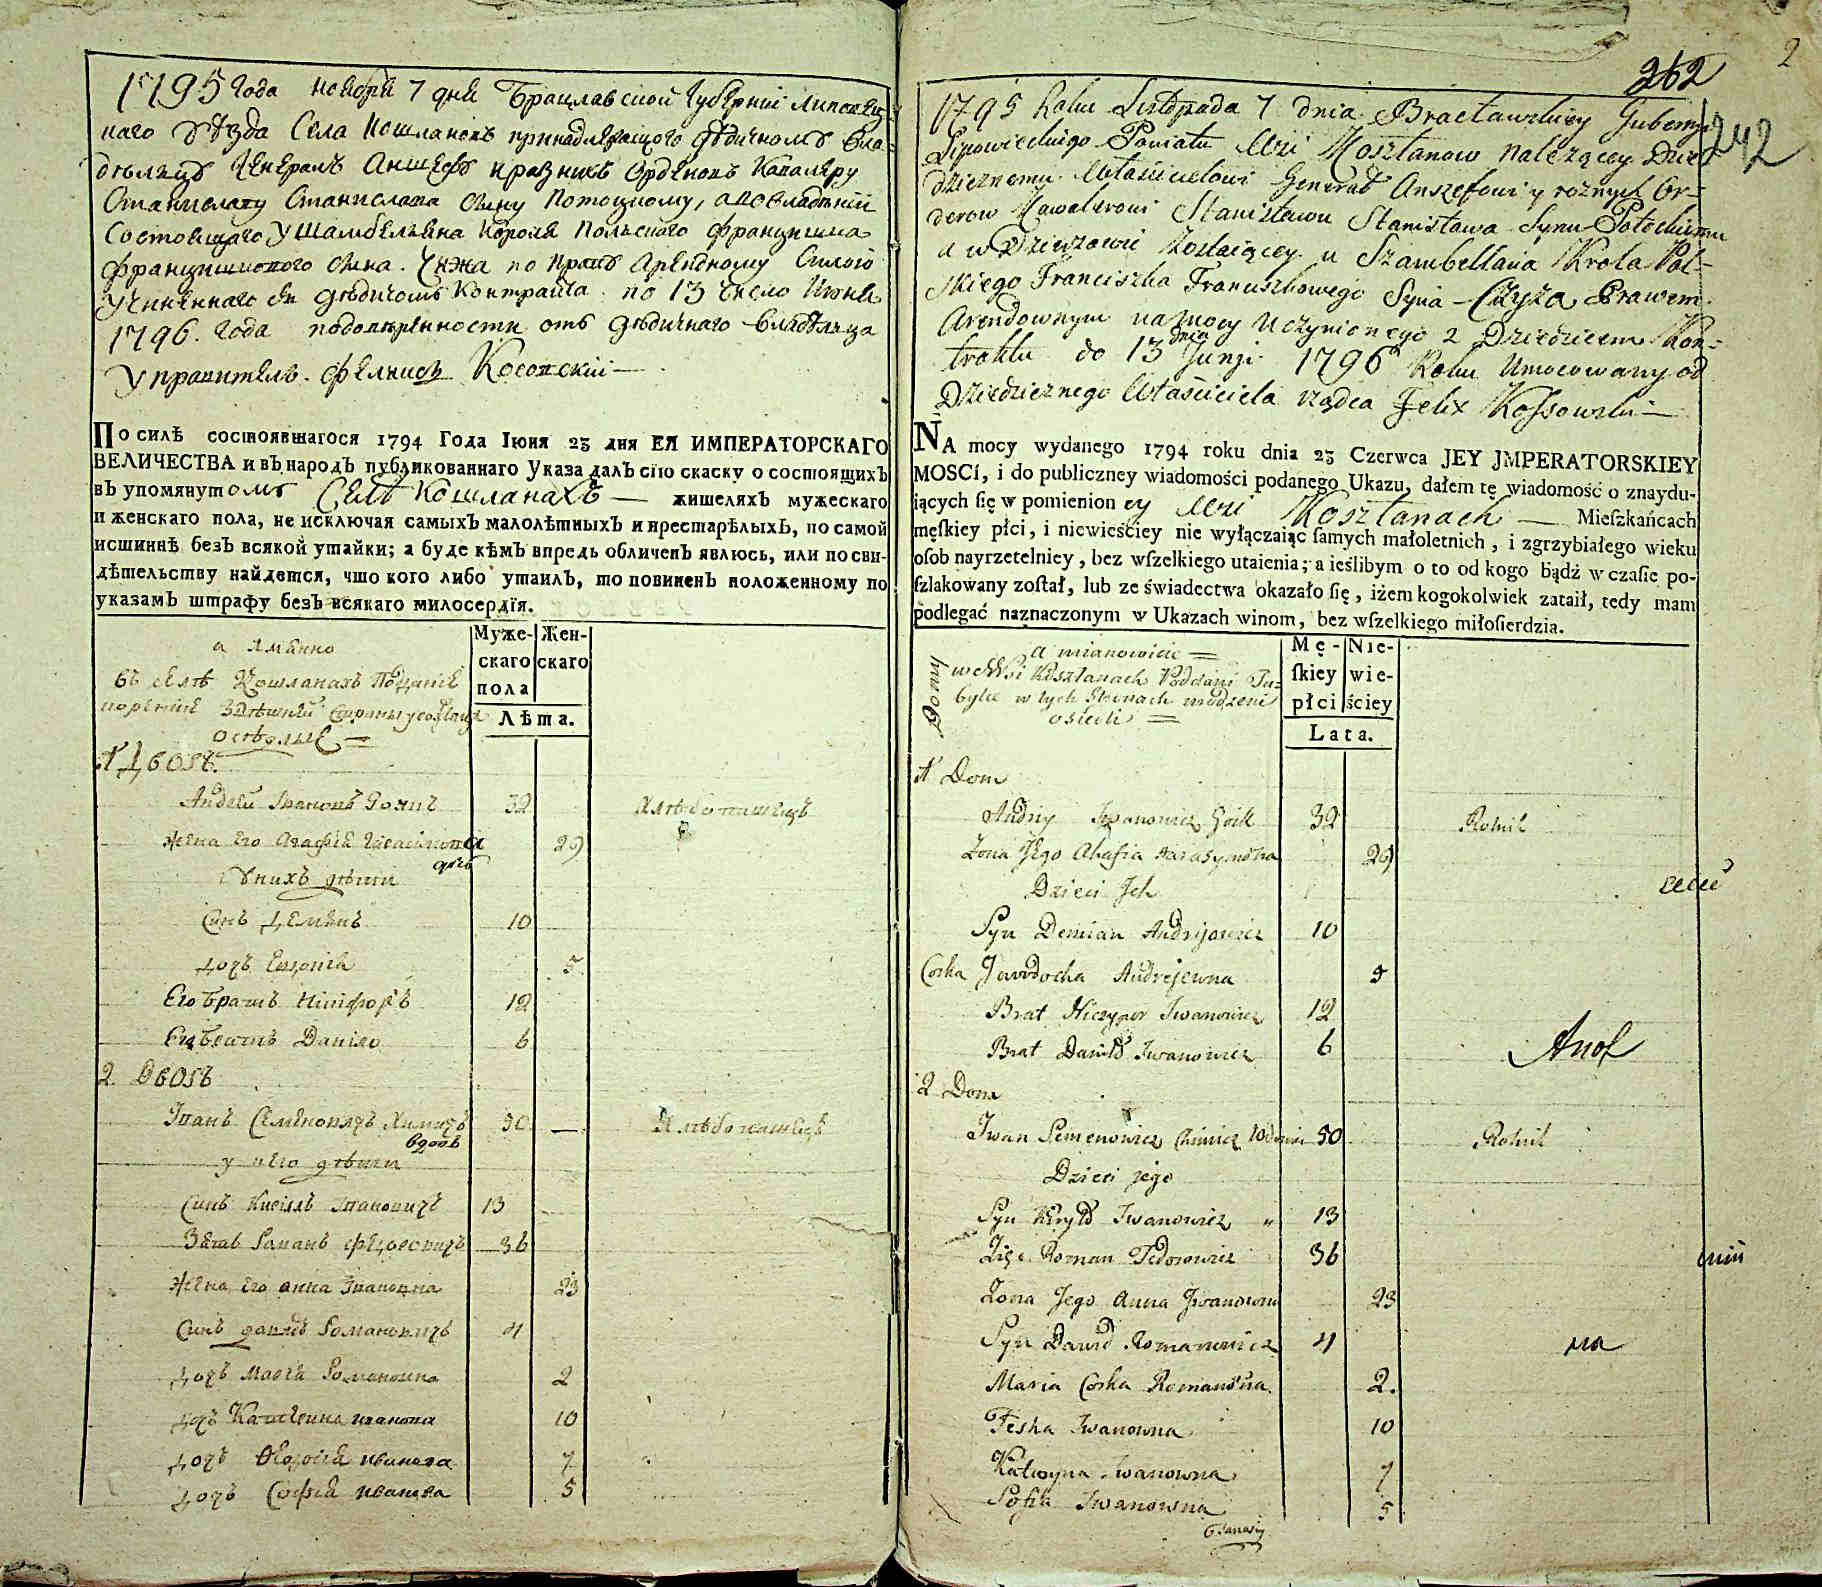 1795 года ноября 7 дня Брацлавской губернии Липовец-
каго уѣзда Села Кошланокъ принадлежащого дѣдичному вла-
дѣльцу Генералъ Аншефу и разныхъ Орденовъ Кавалеру
Станиславу Станислава сыну Потоцкому, а во владѣнии
состоящаго у Шамбеляна Короля Польского Францишка
сына Чижа по праву Арендному силою
учиненнаго съ дѣдичомъ Контракта по 13 число Июня
1796 года по довѣренности отъ дѣдичнаго владѣльца
Управитель Феликсъ Косовский
По силѣ состоявшагося 1794 Года Іюня 23 дня ЕЯ ИМПЕРАТОРСКАГО
ВЕЛИЧЕСТВА и въ народъ публикованнаго Указа далъ сїю скаску о состоящихъ
въ упомянутомъ Селѣ Кошланахъ — жителяхъ мужескаго
и женскаго пола, не исключая самыхъ малолѣтныхъ и престарѣлыхъ, по самой
истиннѣ безъ всякой утайки; а буде кѣмъ впредь обличенъ явлюсь, или по сви-
дѣтельству найдется, что кого либо утаилъ, то повиненъ положенному по
указамъ штрафу безъ всякаго милосердїя.
а имянно
въ селѣ Кошланахъ
Муже-
скаго
пола
Жен-
скаго
Лѣта.
1 Дворъ
Андрей Ивановъ 32 Хлѣбопашецъ
жена его Агафия 29
У нихъ дѣти
Синъ Демянъ 10
дочь Евдокия 5
Его братъ Никифоръ 12
Его братъ Данило 6
2 Дворъ
Иванъ Семеновичъ Химичъ вдовъ 50 — Хлѣбопашецъ
у него дѣти
Синъ Кирилъ Ивановичъ 13
Зять Романъ Федоровичъ 36
жена его Анна Ивановна 23
Синъ Давидъ Романовичъ 4
дочь Мария Романовна 2
дочь Катерина иванова 10
дочь Феодосия иванова 7
дочь София иванова 5
2
262
242
1795 Roku Listopada 7 dnia Bracławskiey Gubernji
Lipowieckiego Powiatu Wsi Kosztanow należącey Dzie-
dzicznemu Właścicielowi Generał Anszefowi y roznych Or-
derow Kawalerowi Stanisławu Stanisława Synu Potockiemu
a w Dzierzawie zostaiącey u Szambellana Krola Pol-
skiego Franciszka Franuszkowego Syna – Czyża Prawem
Arendownym na mocy uczynionego z Dziedzicem Kon-
traktu do 13 dnia Junji 1796 Roku Umocowany od
Dziedzicznego Właściciela rządca Felix Kossowski —
NA mocy wydanego 1794 roku dnia 23 Czerwca JEY JMPERATORSKIEY
MOSCI, i do publiczney wiadomości podanego Ukazu, dałem tę wiadomość o znaydu-
iących ſię w pomienioney Wsi Kosztanach — Mieſzkańcach
męſkiey płci, i niewieściey nie wyłączaiąc ſamych małoletnich, i zgrzybiałego wieku
oſob nayrzetelniey, bez wſzelkiego utaienia; a ieślibym o to od kogo bądź w czaſie po-
ſzlakowany zoſtał, lub ze świadectwa okazało ſię, iżem kogokolwiek zataił, tedy mam
podlegać naznaczonym w Ukazach winom, bez wſzelkiego miłoſierdzia.
Domy
a mianowicie
w Wsi Kosztanach Poddani Tu-
bylce w tych Stronach urodzeni
osiedli
Mę-
ſkiey
płci
Nie-
wie-
ściey
Lata.
1 Dom
Andriy Iwanowicz 32 Rolnik
Zona Jego Ahafia Harasymowna 29
Dzieci Jch
Syn Demian Andrijowicz 10
Corka Jawdocha Andrejewna 5
Brat Niczypor Iwanowicz 12
Brat Daniło Iwanowicz 6
2 Dom
Iwan Semenowicz Chimicz Wdowiec 50 Rolnik
Dzieci jego
Syn Kiryło Iwanowicz 13
Zięć Roman Fedorowicz 36
Zona Jego Anna Iwanowna 23
Syn Dawid Romanowicz 4
Maria Corka Romanowna 2.
Feska Iwanowna 10
Katerzyna Iwanowna 7
Sofia Iwanowna 5